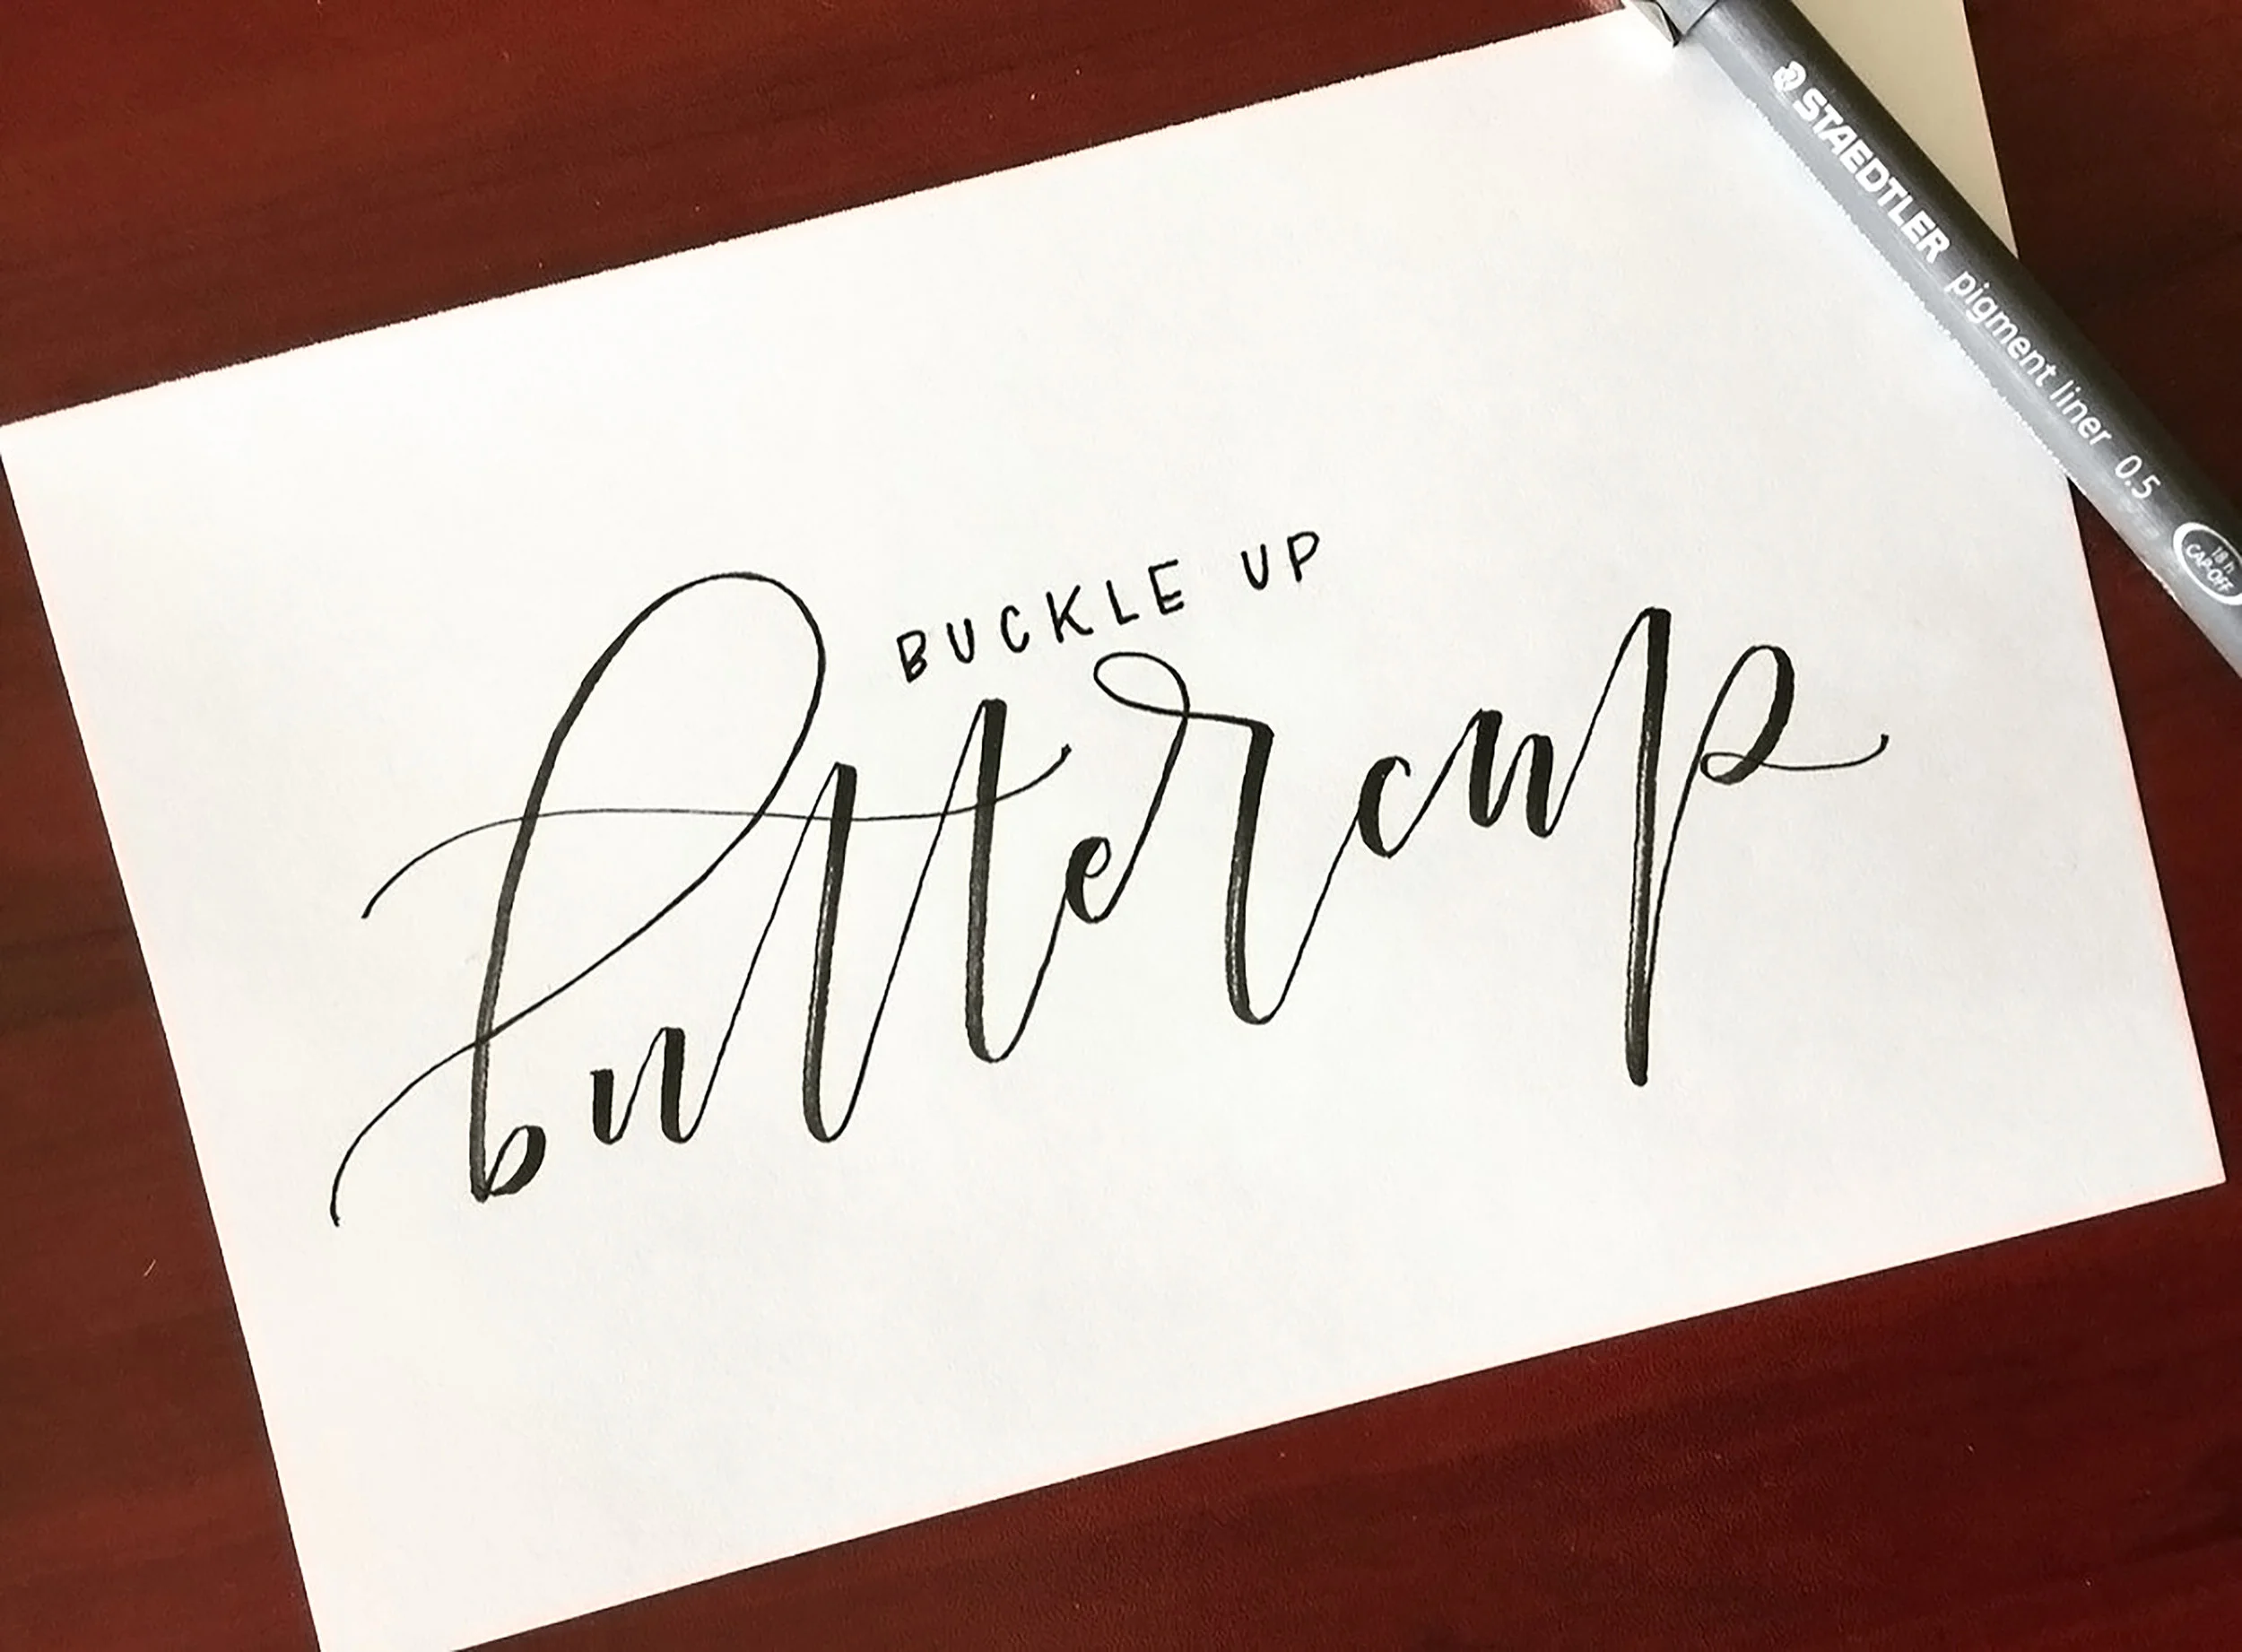 BUCKLE UP
buttercup
STAEDTLER pigment liner 0.5
18 h
CAP-OFF